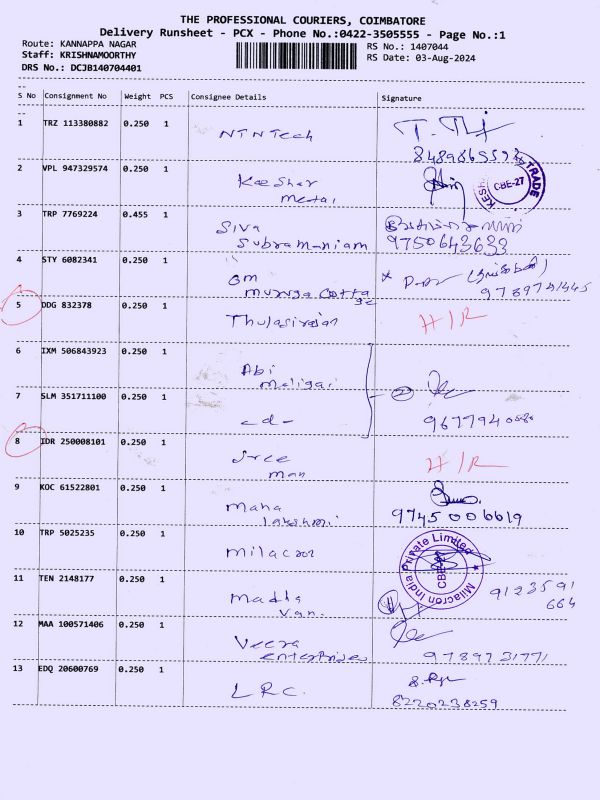 THE PROFESSIONAL COURIERS, COIMBATORE
Delivery Runsheet - PCX - Phone No.:0422-3505555 - Page No.:1
Route: KANNAPPA NAGAR
Staff: KRISHNAMOORTHY
DRS No.: DCJB140704401
RS No.: 1407044
RS Date: 03-Aug-2024
S No Consignment No Weight PCS Consignee Details Signature
1 TRZ 113380882 0.250 1
NTNTech
2 VPL 947329574 0.250 1
Keeshar
metal
CBE-27
TRADE
3 TRP 7769224 0.455 1
Siva
Subramaniam
9750643633
4 STY 6082341 0.250 1
Om
muruga Cottage
5 DDG 832378 0.250 1
Thulasirajan H/R
6 IXM 506843923 0.250 1
Abi
maligai
7 SLM 351711100 0.250 1
-d-
8 IDR 250008101 0.250 1
Sree
man
H/R
9 KOC 61522801 0.250 1
maha
lakshmi
9745006619
10 TRP 5025235 0.250 1
milacron
Milacron India Private Limited
CBE
11 TEN 2148177 0.250 1
Madha
Van.
9123591
664
12 MAA 100571406 0.250 1
Veera
enterprises
9789731771
13 EDQ 20600769 0.250 1
LRC.
8220238259